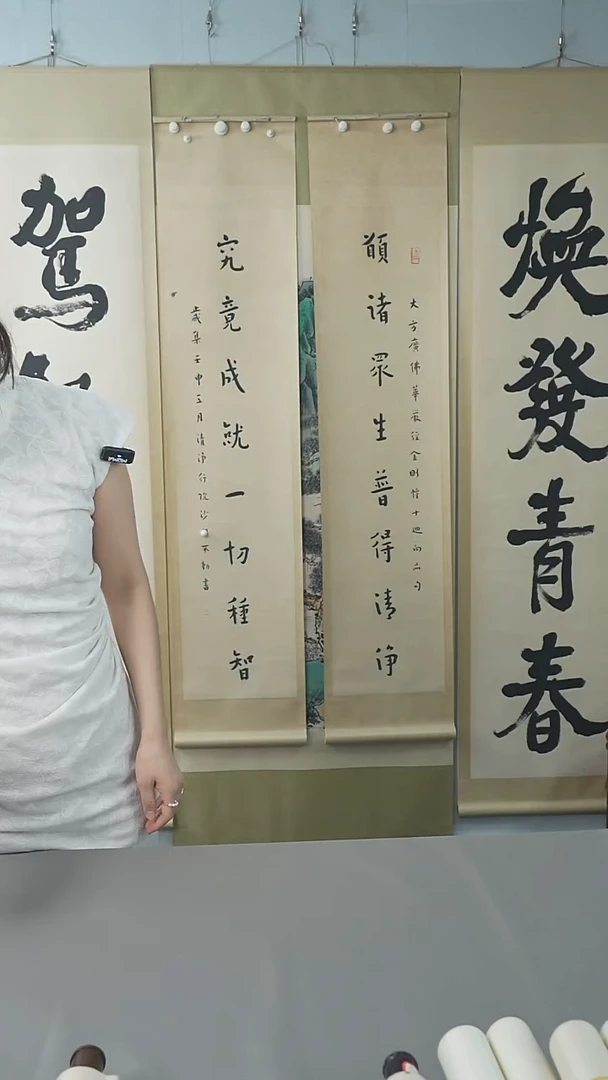 煥發青春
大方廣佛華嚴經金剛幢十迴向句
願諸眾生普得清淨
究竟成就一切種智
歲集壬申月清淨行院沙不動書
駕